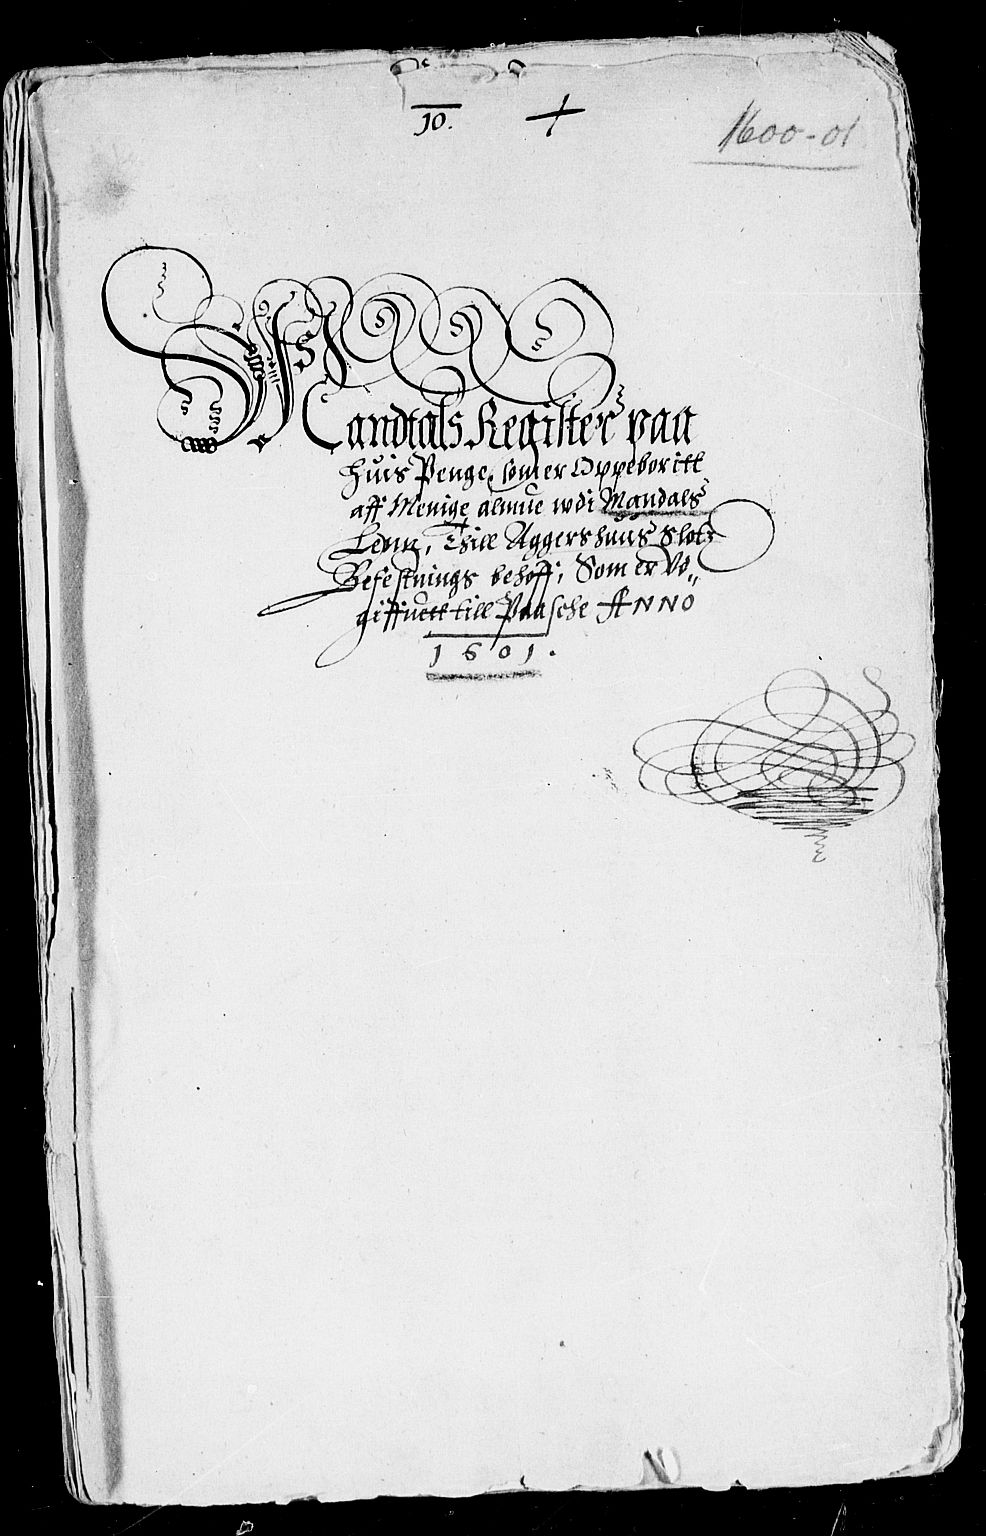 10.
1600-01
Mandtals Register paa
huis Penge, som er Oppeboritt
aff Menige almue wdi Mandals
Lenn, Thill Aggershuus Slotz
Befestnings behoff, Som er Vd„
giffuett till Paasche ANNO
1601.